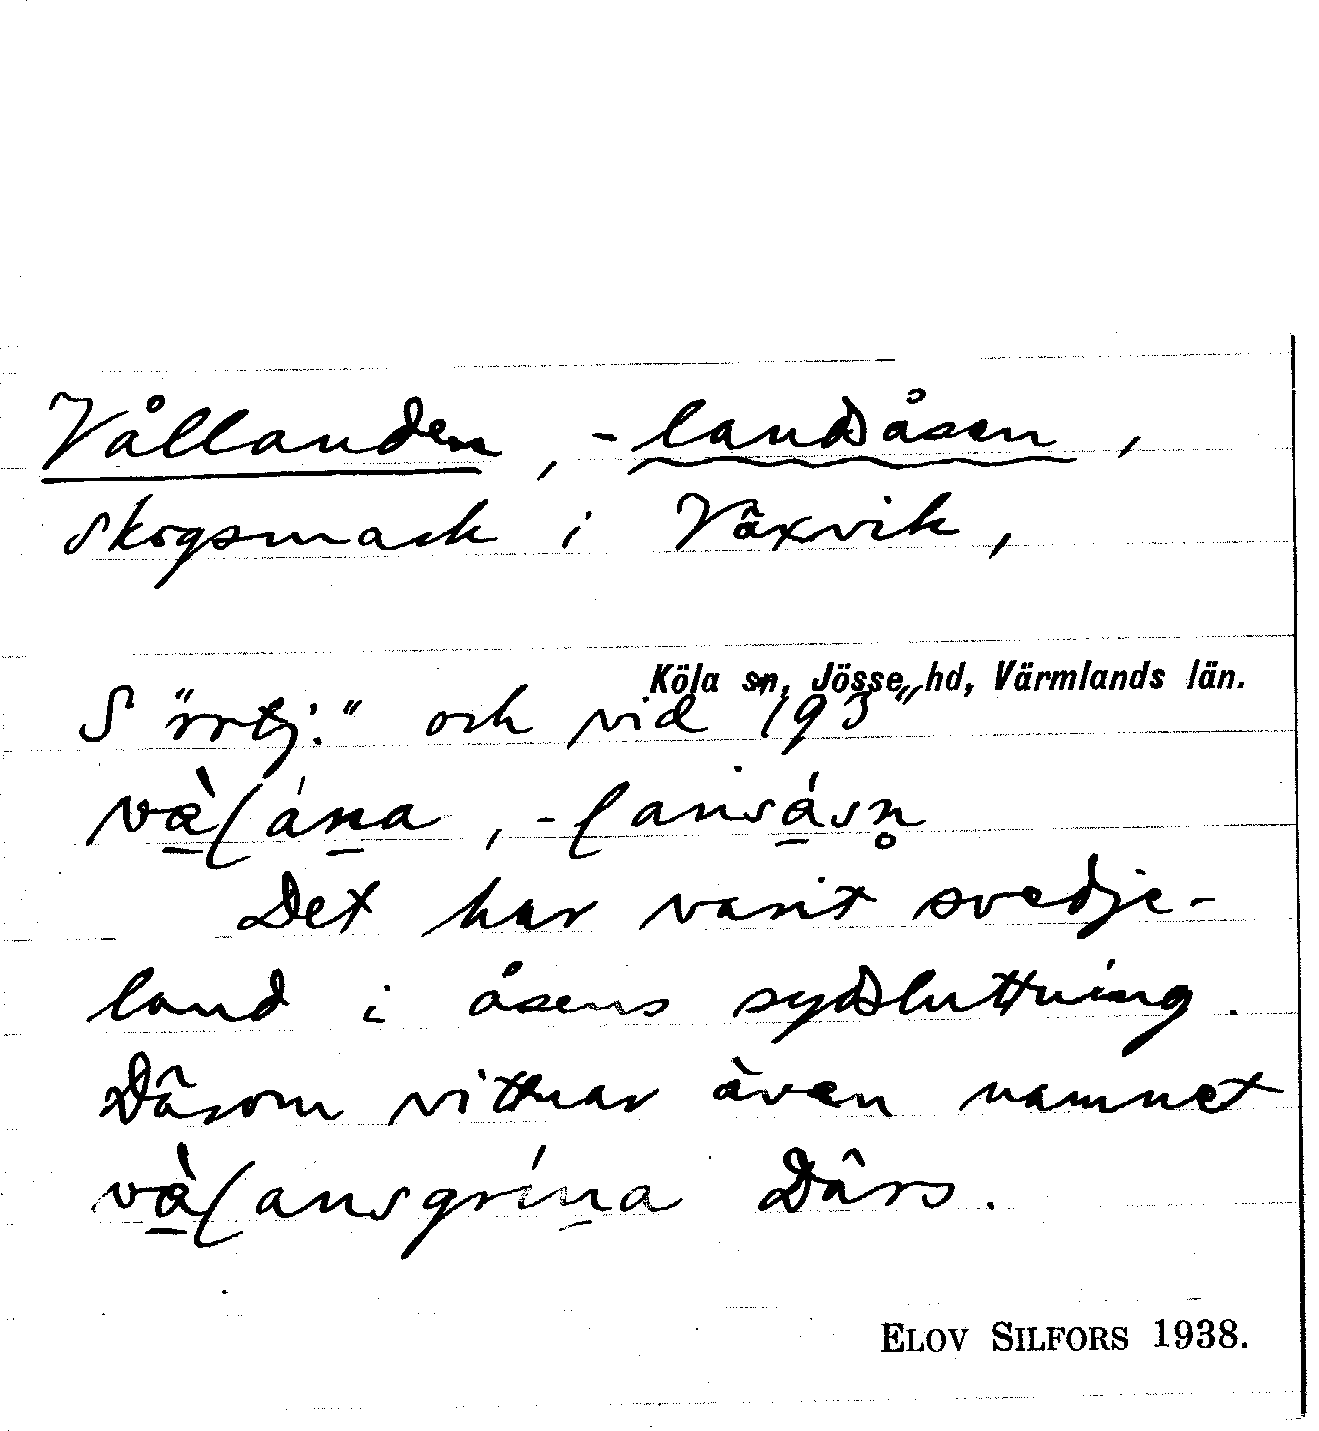 Vållanden, -landsåsen,
skogsmark i Växvik,
Köla sn, Jösse hd, Värmlands län.
S "rrtj." och vid "193"
Det har varit svedje-
land i åsens sydsluttning.
Därom vittnar även namnet
därs.
ELOV SILFORS 1938.